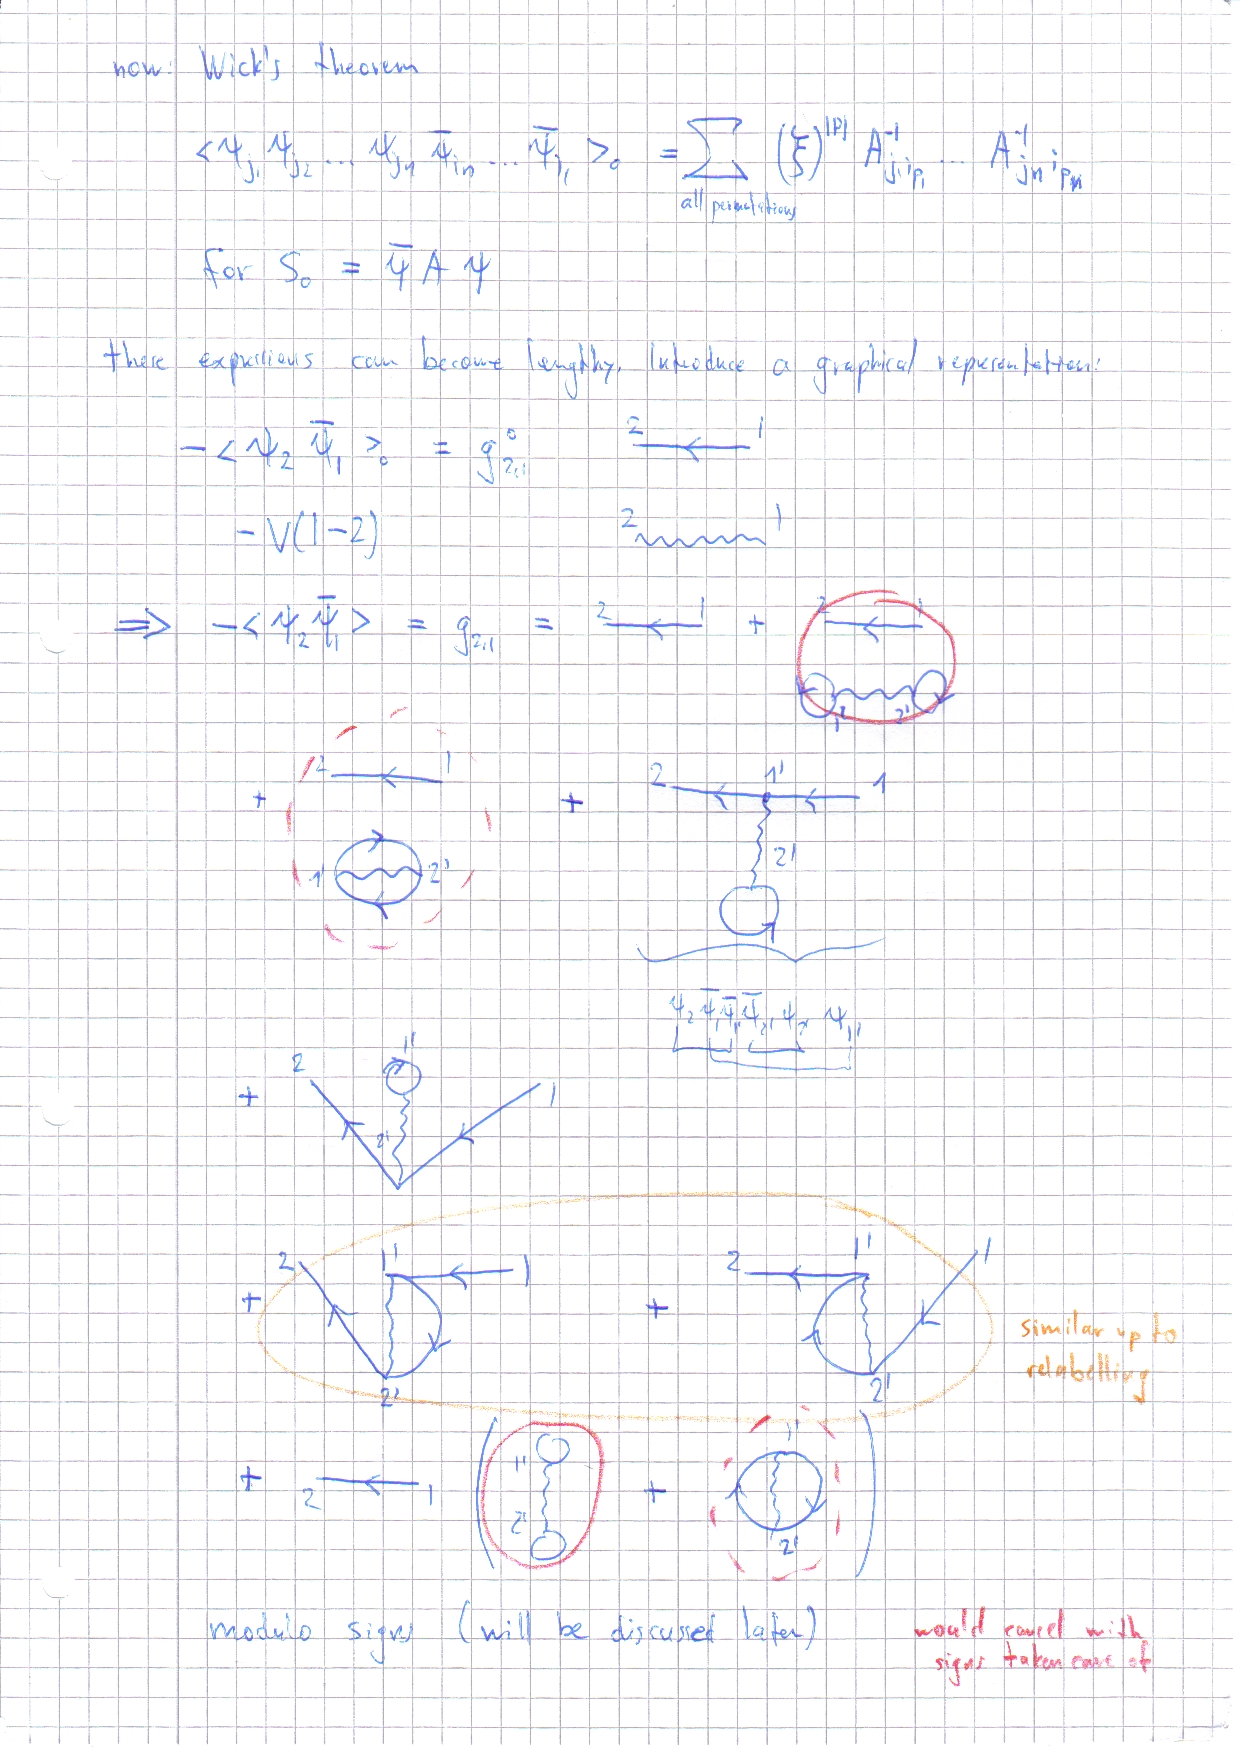 now: Wick's theorem
<ψ_{j_1} ψ_{j_2} ... ψ_{j_n} ψ̄_{i_n} ... ψ̄_{i_1} >_0 = Σ (ξ)^{|P|} A^{-1}_{j_1 i_{P_1}} ... A^{-1}_{j_n i_{P_n}}
all permutations
for S_0 = ψ̄ A ψ
these expressions can become lengthy, introduce a graphical representation:
- <ψ_2 ψ̄_1 >_0 = g^0_{2,1} 2 1
- V(1-2) 2 1
⇒ - <ψ_2 ψ̄_1 > = g_{2,1} = 2 1 + 2 1
1' 2'
+ 2 1 + 2 1' 1
1' 2' 2'
ψ_2 ψ̄_1 ψ̄_{1'} ψ̄_{2'} ψ_{2'} ψ_{1'}
+ 2 1' 1
2'
+ 2 1' 1 + 2 1' 1
similar up to
relabelling
2' 2'
+ 2 1 ( 1' 2' + 1' 2' )
modulo signs (will be discussed later)
would cancel with
signs taken care of